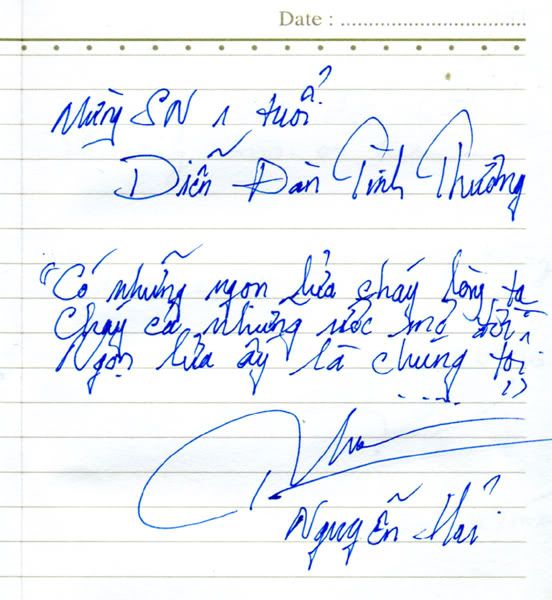 Date : ................................
Mừng SN 1 tuổi
Diễn Đàn Tình Thương
"Có những ngọn lửa cháy lòng ta
Cháy cả những ước mơ đời
Ngọn lửa ấy là chúng tôi
....."
Nguyễn Hải